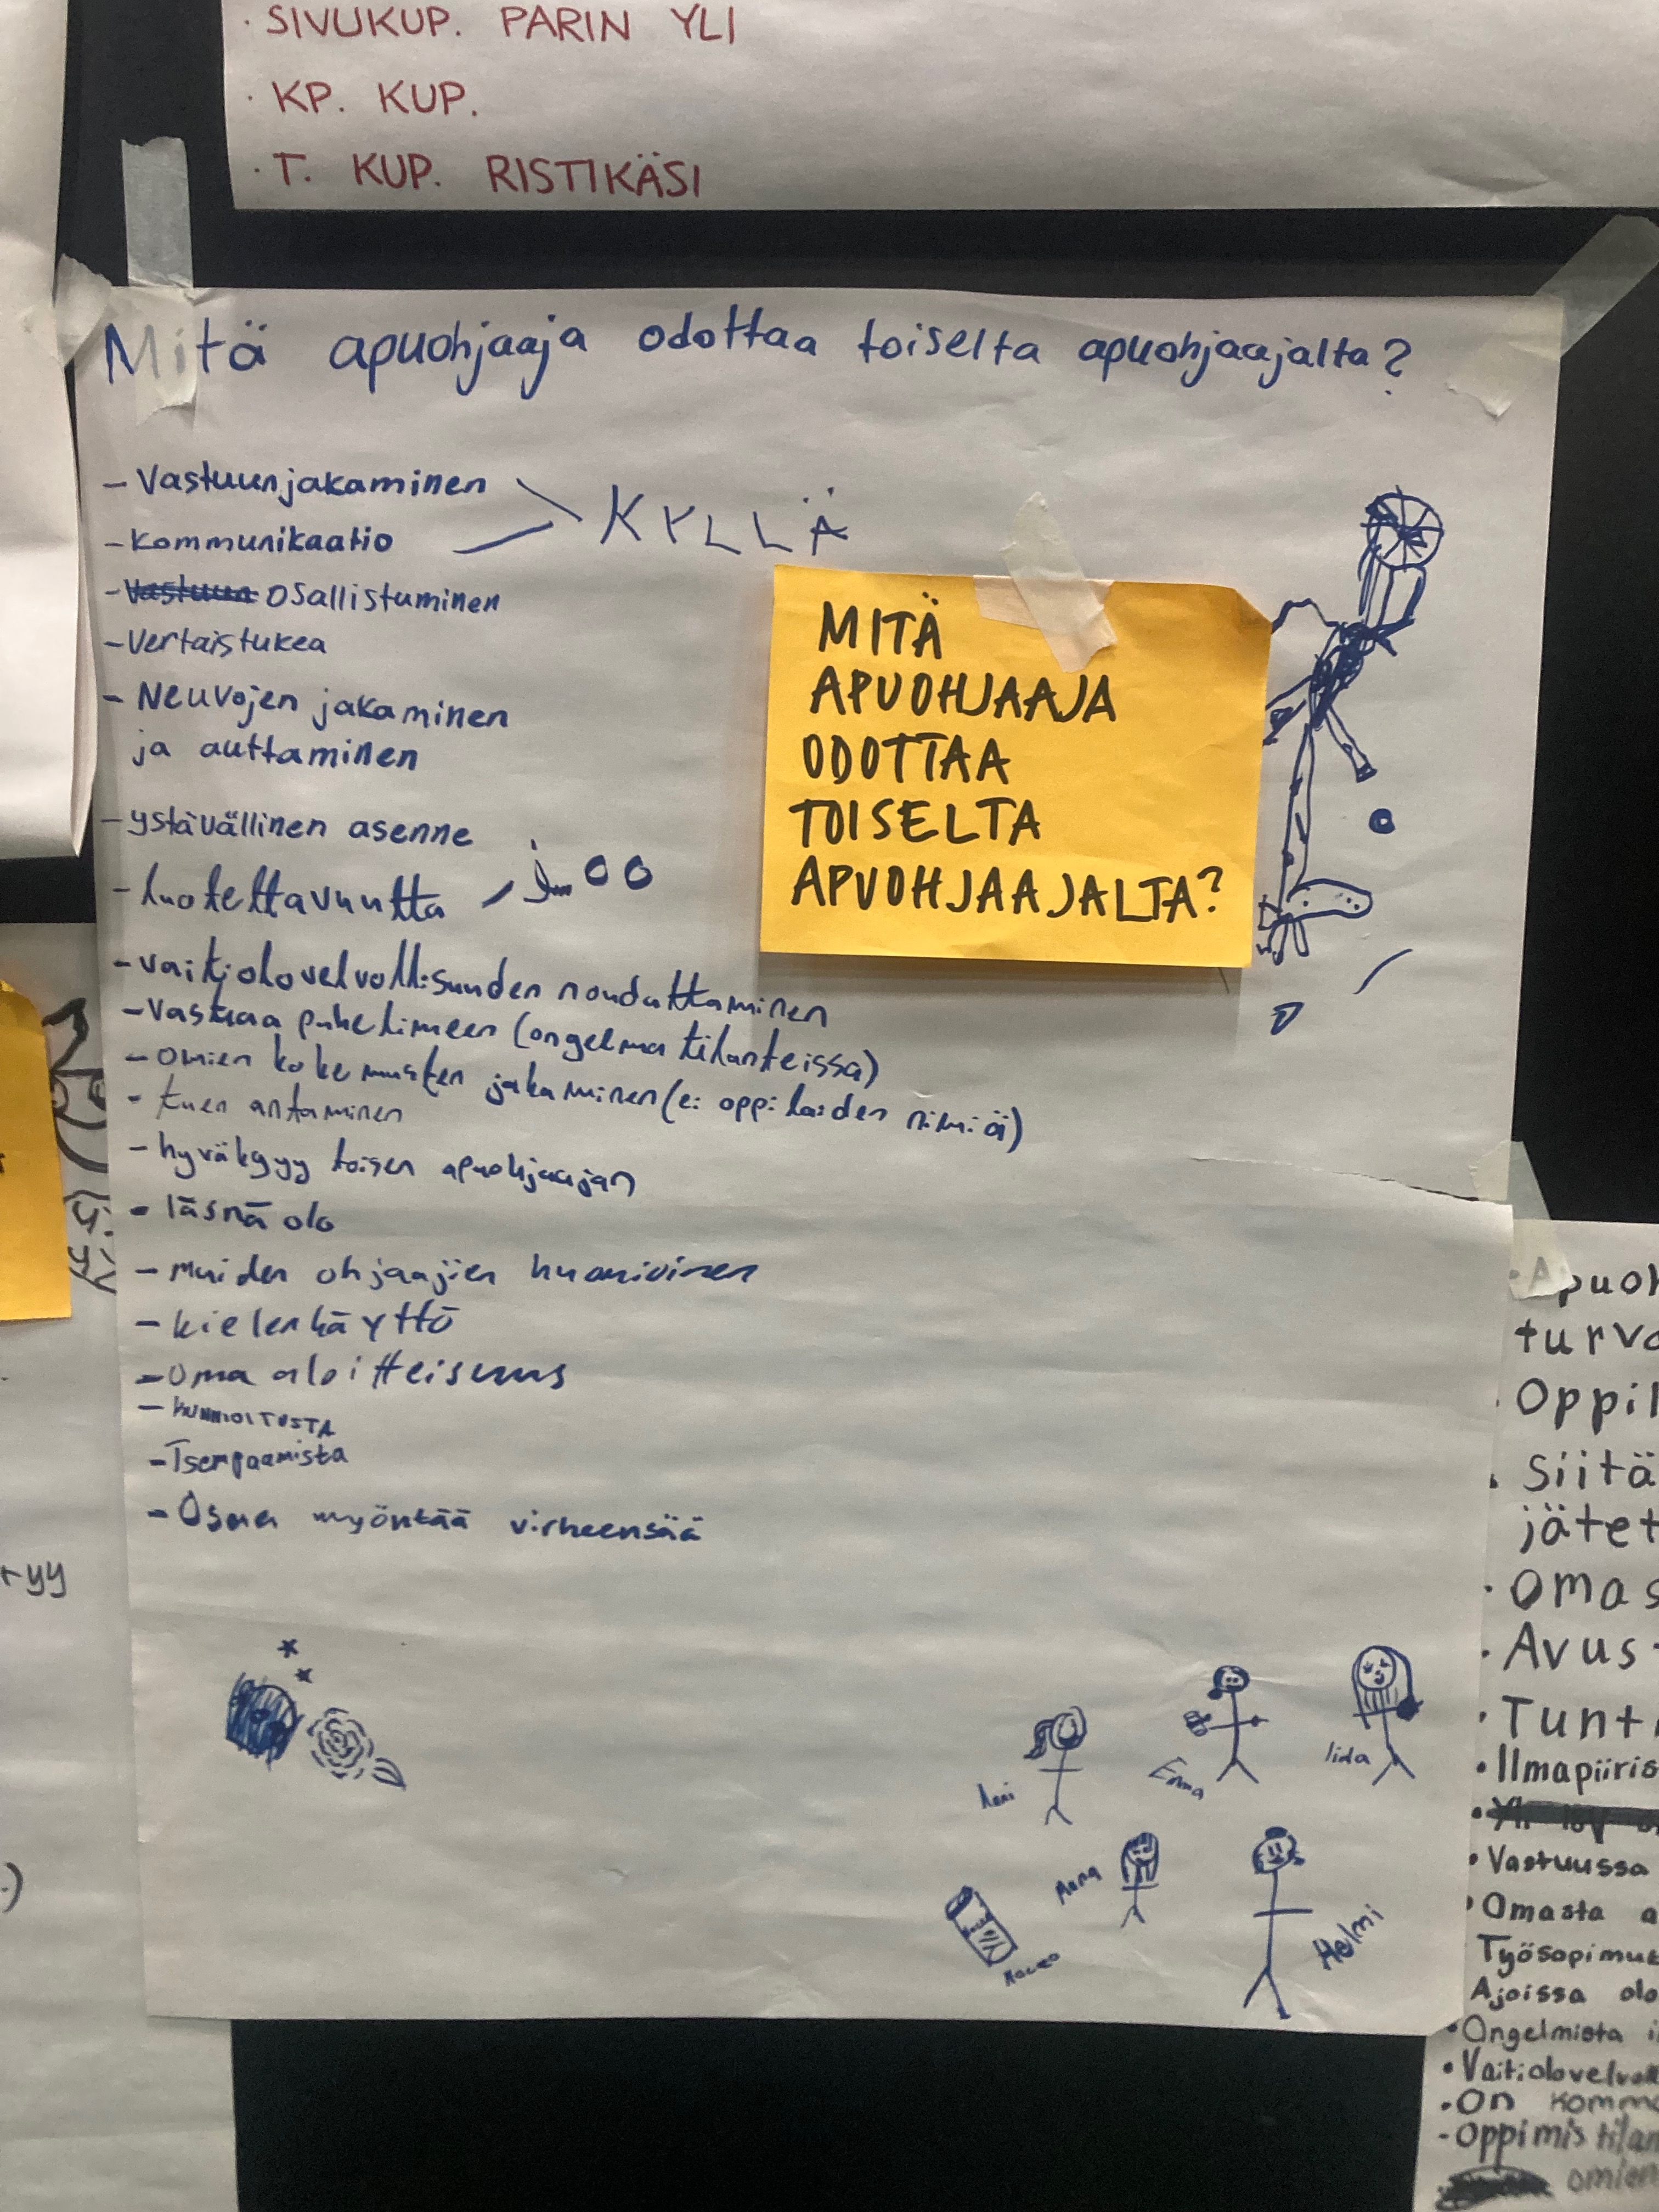 · SIVUKUP. PARIN YLI
· KP. KUP.
· T. KUP. RISTIKÄSI
Mitä apuohjaaja odottaa toiselta apuohjaajalta?
- Vastuunjakaminen
- kommunikaatio
KYLLÄ
- Vastuun osallistuminen
- Vertaistukea
- Neuvojen jakaminen
ja auttaminen
- ystävällinen asenne
- luotettavuutta - joo
- vaitiolovelvollisuuden noudattaminen
- vastaa puhelimeen (ongelma tilanteissa)
- omien kokemusten jakaminen (ei oppilaiden nimiä)
- tuen antaminen
- hyväksyy toisen apuohjaajan
- läsnä olo
- muiden ohjaajien huomioinen
- kielenkäyttö
- oma aloitteisuus
- KUNNIOITUSTA
- Tsemppaamista
- Osaa myöntää virheensää
MITÄ
APUOHJAAJA
ODOTTAA
TOISELTA
APUOHJAAJALTA?
Emma
Iida
Helmi
ryy
·Apuoh
turva
·Oppil
· Siitä
jätet
·omas
·Avus
·Tunti
•Ilmapiiris
•Vastuussa
•Omasta a
Työsopimuk
Ajoissa olo
•Ongelmista i
•Vaitiolovelvoll
•On komm
-oppimistilan
omien